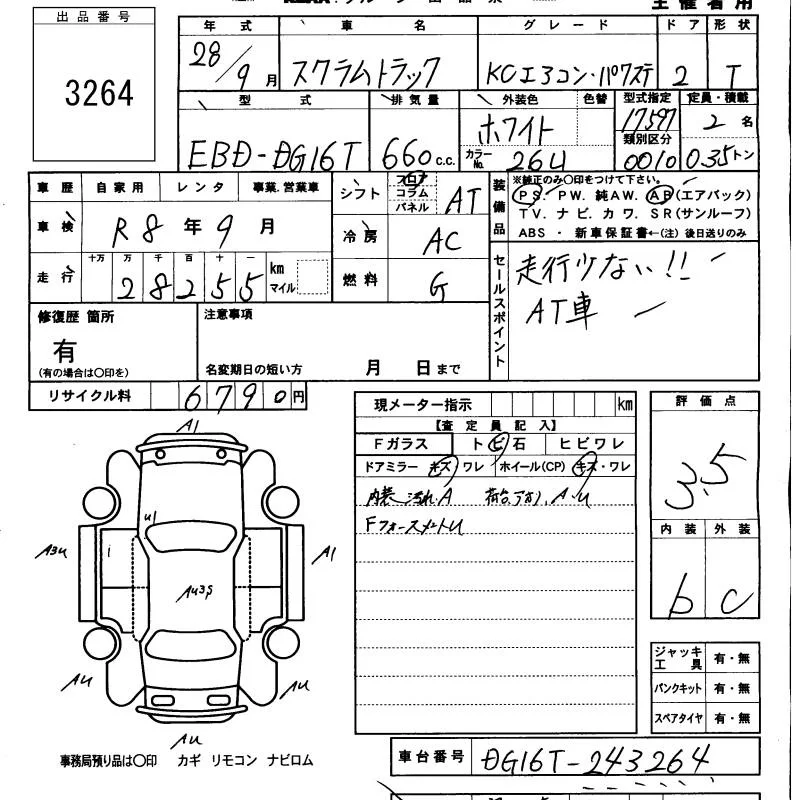 主催者用
出品番号
3264
年式 車名 グレード ドア 形状
28/9月 スクラムトラック KCエアコン・パワステ 2 T
型式 排気量 外装色 色替 型式指定 定員・積載
EBD-DG16T 660c.c. ホワイト 17597 2名
カラーNo. 26U 類別区分 0010 0.35トン
車歴 自家用 レンタ 事業.営業車
シフト フロア コラム パネル AT
装備品
※純正のみ○印をつけて下さい。
PS. PW. 純AW. AB(エアバック)
TV. ナビ. カワ. SR(サンルーフ)
ABS ・ 新車保証書←(注) 後日送りのみ
車検 R8年9月
冷房 AC
走行 十万 万 千 百 十 一
28255 km マイル
燃料 G
セールスポイント
走行少ない!!
AT車
修復歴 箇所
有
(有の場合は○印を)
注意事項
名変期日の短い方 月 日まで
リサイクル料 6790円
現メーター指示 km
【査定員記入】
Fガラス トビ石 ヒビワレ
ドアミラー キズ ワレ ホイール(CP) キズ・ワレ
内装 汚れ.A A.U
評価点
3.5
内装 外装
b c
A1
U1
i
A3U
A1
AU3S
AU
AU
AU
ジャッキ 工具 有・無
パンクキット 有・無
スペアタイヤ 有・無
事務局預り品は○印 カギ リモコン ナビロム
車台番号 DG16T-243264